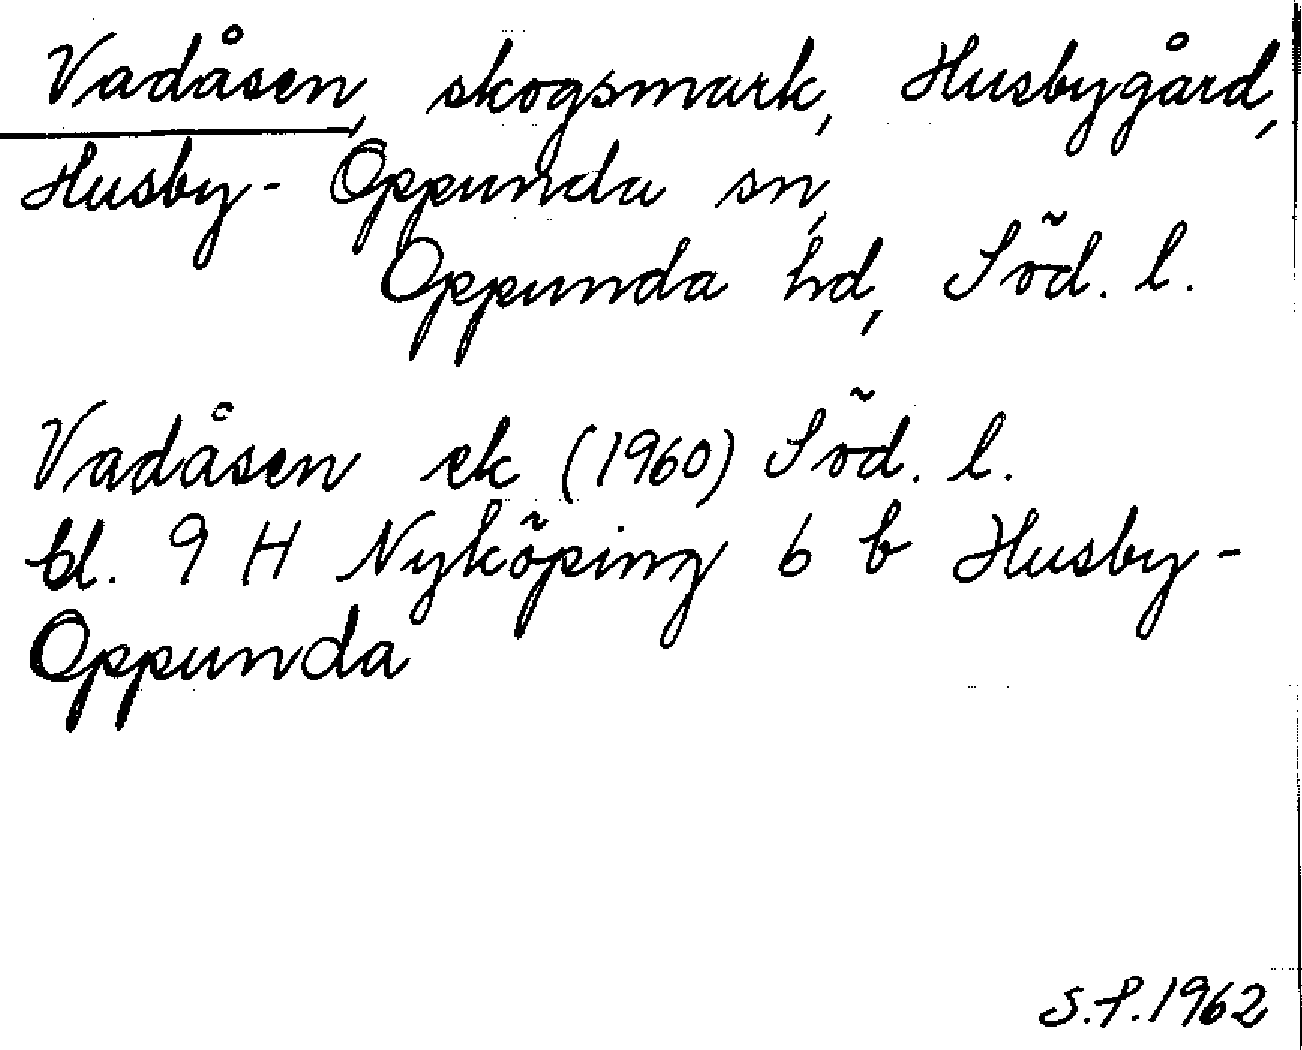 Vadåsen, skogsmark, Husbygård,
Husby- Oppunda sn,
Oppunda hd, Söd. l.
Vadåsen ek (1960) Söd. l.
bl. 9 H Nyköping 6 b Husby-
Oppunda
S.P. 1962